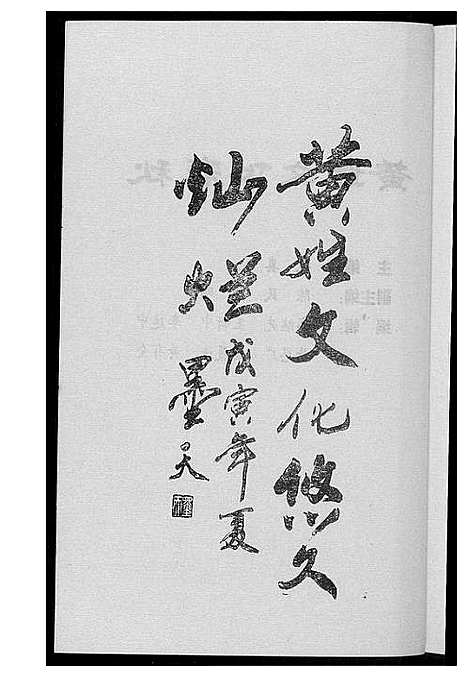 黄姓文化悠久
灿烂
戊寅年夏
墨天